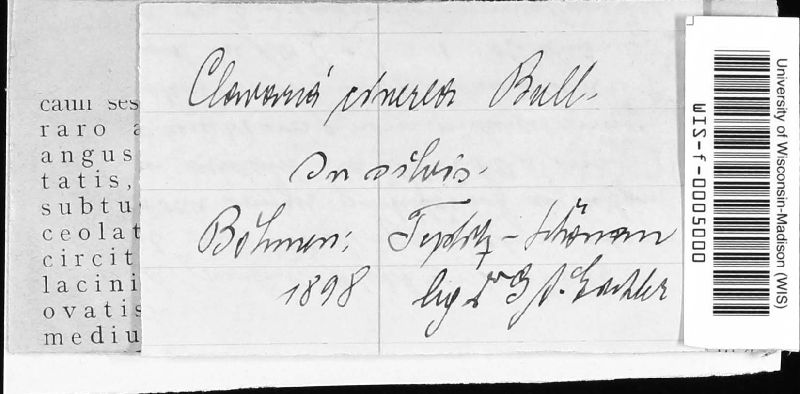 Clavaria cinerea Bull.
In silvis.
Böhmen: Teplitz-Schönau
1898 leg Dr
cauli ses
raro a
angus
tatis,
subtu
ceolat
circit
lacini
ovatis
mediu
University of Wisconsin-Madison (WIS)
WIS-f-0005000